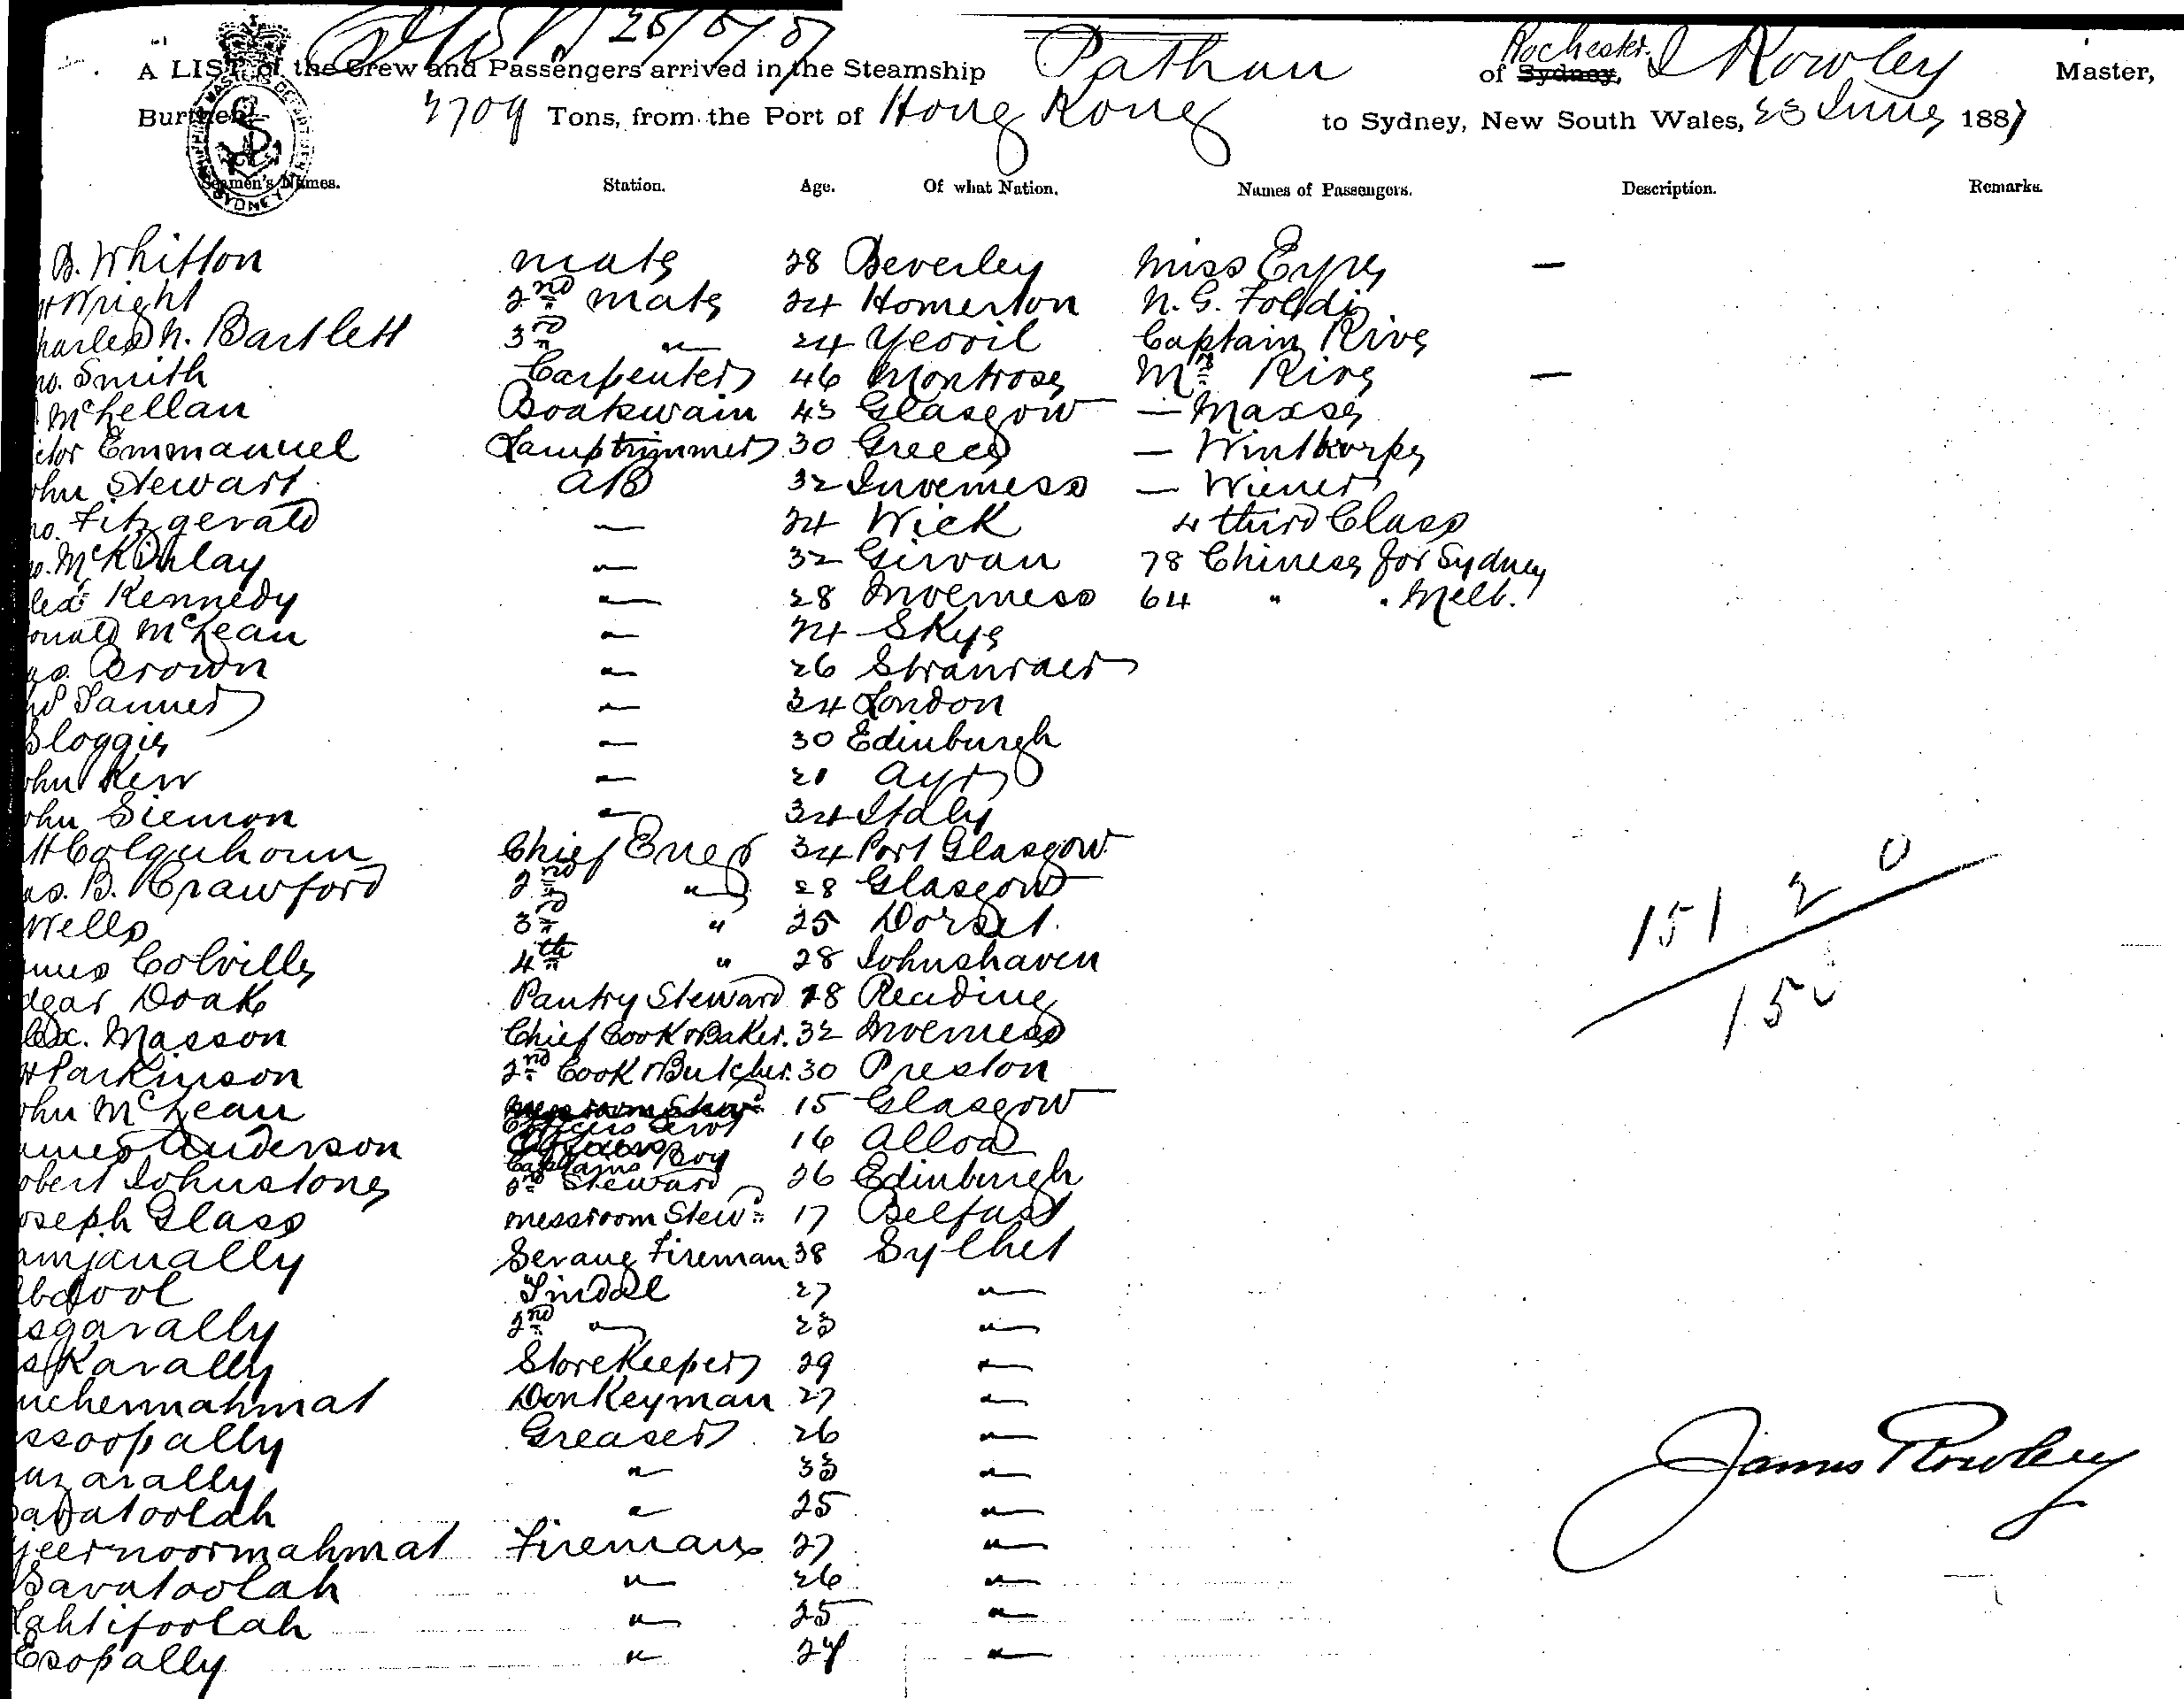 25/6/87
A LIST of the Crew and Passengers arrived in the Steamship Pathan of Sydney, Rochester. J Rowley Master,
Burthen 2709 Tons, from the Port of Hong Kong to Sydney, New South Wales, 23 June 1887
SYDNEY
Seamen's Names. Station. Age. Of what Nation. Names of Passengers. Description. Remarks.
B. Whitton mate 28 Beverley Miss Eyre —
Wright 2nd mate 24 Homerton N. G. Foldi
harles N. Bartlett 3rd " 24 Yeovil Captain Rive
no. Smith Carpenter 46 Montrose Mrs Rive —
McLellan Boatswain 43 Glasgow — Maxse
ictor Emmanuel Lamptrimmer 30 Greece — Winthorpe
ohn Stewart AB 32 Inverness — Wiener
no. Fitzgerald " 24 Wick 4 third Class
o. McKinlay " 32 Girvan 78 Chinese for Sydney
lex Kennedy " 28 Inverness 64 " " Melb.
onald McLean " 24 Skye
as. Brown " 26 Stranraer
Tanner " 34 London
Sloggie " 30 Edinburgh
ohn Kerr " 21 Ayr
ohn Siemon " 34 Italy
Colquhoun Chief Engr 34 Port Glasgow
as. B. Crawford 2nd " 28 Glasgow
Wells 3rd " 25 Dorset.
ames Colville 4th " 28 Johnshaven
dgar Doak Pantry Steward 18 Reading
lex. Masson Chief Cook & Baker. 32 Inverness
Parkinson 2nd Cook & Butcher. 30 Preston
ohn McLean Messroom Stewd Officers Servt 15 Glasgow
ames Anderson Captains Boy 16 Alloa
obert Johnstone 2nd Steward 26 Edinburgh
oseph Glass Messroom Stewd 17 Belfast
amjanally Serang Fireman 38 Sylhet
bdool Tindal 27 "
sgarally 2nd " 23 "
skarally Storekeeper 29 "
uchenmahmat Donkeyman 27 "
ssoopally Greaser 26 "
uzarally " 33 "
adatoolah " 25 "
jeernoormahmat Fireman 27 "
Savatoolah " 26 "
Lahtifoolah " 25 "
Esopally " 24 "
151 2 0
15
James Rowley